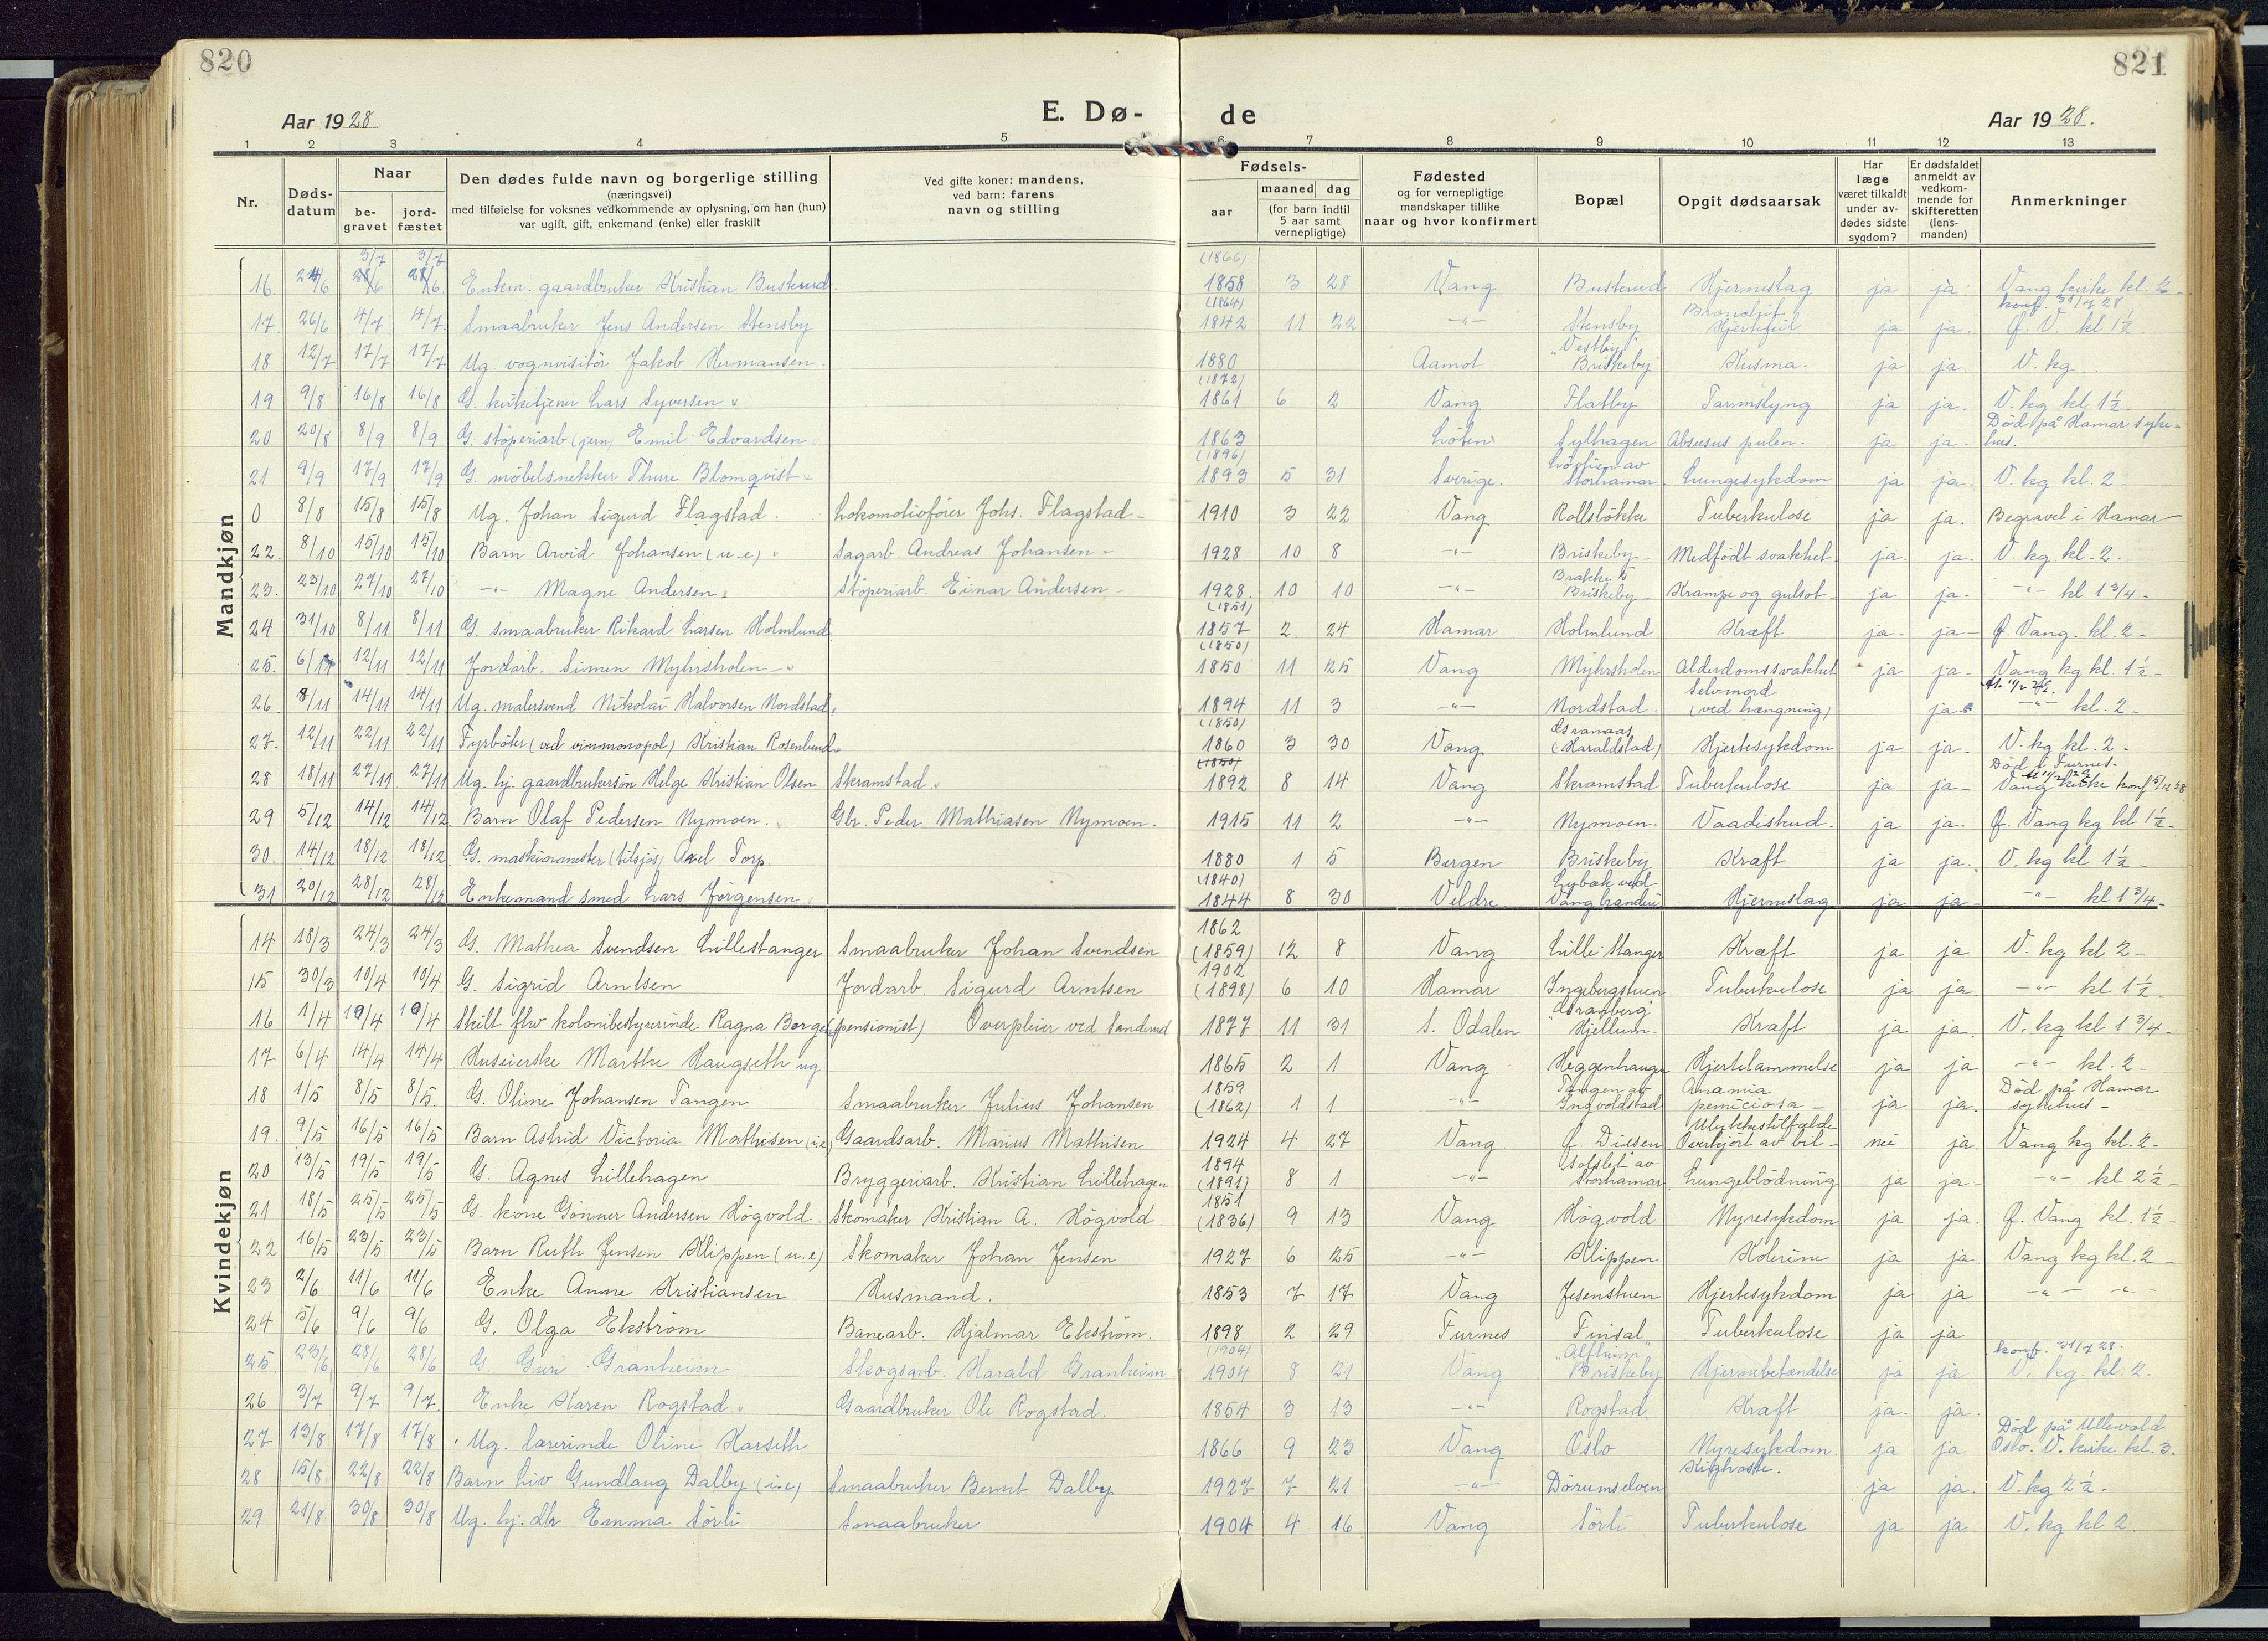 820
821
Aar 1928
E. Dø-
de
Aar 1928.
1 2 3 4 5 6 7 8 9 10 11 12 13
Nr.
Døds-
datum
Naar
be-
gravet
jord-
fæstet
Den dødes fulde navn og borgerlige stilling
(næringsvei)
med tilføielse for voksnes vedkommende av oplysning, om han (hun)
var ugift, gift, enkemand (enke) eller fraskilt
Ved gifte koner: mandens,
ved barn: farens
navn og stilling
Fødsels-
aar
maaned dag
(for barn indtil
5 aar samt
vernepligtige)
Fødested
og for vernepligtige
mandskaper tillike
naar og hvor konfirmert
Bopæl
Opgit dødsaarsak
Har
læge
været tilkaldt
under av-
dødes sidste
sygdom?
Er dødsfaldet
anmeldt av
vedkom-
mende for
skifteretten
(lens-
manden)
Anmerkninger
Mandkjøn
3/7 3/7 (1866)
16. 24/6 28/6 28/6. Enkm. gaardbruker Kristian Buskerud. 1858 3 28 Vang Buskerud Hjerneslag ja ja. Vang kirke kl. 2
konf. 31/7 28
17. 26/6 4/7 4/7. Smaabruker Jens Andersen Stensby (1864) 1842 11 22 -"- Stensby Hjertefeil ja ja. F. V. kl 1½.
18 12/7 17/7 17/7 Ug. vognvisitör Jakob Hermansen. 1880 Aamot "Vestby" Briskeby Kusma. ja ja. V. kg.
19 9/8 16/8 16/8 G. kirketjener Lars Syversen (1872) 1861 6 2 Vang Flatby Tarmslyng ja ja. V. kg kl 1½.
20 20/8 8/9 8/9 G. stöperiarb (jern) Emil Edvardsen 1863 Löten Sylhagen Abscesus pulm. ja ja. Död på Hamar syke=
hus.
21 9/9 17/9 17/9 G. möbelsnekker Thure Blomqvist (1896) 1893 5 31 Sverige. Storhamar Lungesykdom ja ja. V. kg kl. 2 -
0 8/8 15/8 15/8 Ug. Johan Sigurd Flagstad. Lokomotivförer Johs. Flagstad - 1910 3 22 Vang Rollslökke Tuberkulose ja ja. Begravet i Hamar
22. 8/10 15/10 15/10 Barn Arvid Johansen (u.e) Sagarb. Andreas Johansen 1928 10 8 -"- Briskeby - Medfödt svakhet ja. ja. V. kg kl. 2 -
23. 23/10 27/10 27/10 -"- Magne Andersen Stöperiarb. Einar Andersen - 1928 10 10 -"- Brakke 5 Briskeby - Krampe og gulsot - ja ja. -"- kl 1 3/4 -
24 31/10 8/11 8/11 G. smaabruker Rikard Larsen Holmlund (1851) 1857 2 24 Hamar Holmlund Kræft ja. ja - F. Vang. kl. 2 -
25. 6/11 12/11 12/11 Jordarb. Simen Myhrsholen - (1850) 1850 11 25 Vang Myhrsholen Alderdomssvakhet ja ja - Vang kg kl. 1½ -
26. 8/11 14/11 14/11 Ug. malersvend Nikolai Halvorsen Nordstad 1894 11 3 -"- Nordstad. Selvmord (ved hængning) ja -"- kl. 2 -
27. 12/11 22/11 22/11 Fyrböter (ved vinmonopol) Kristian Rosenlund (1850) 1860 3 30 Vang Granaas (Haraldstad) Hjertesykdom ja ja. V. kg kl. 2 -
28 18/11 27/11 27/11 Ug. hj. gaardbrukersön Helge Kristian Olsen Skramstad. 1892 8 14 Vang Skramstad Tuberkulose ja ja - Död i Furnes.
Vang kirke konf 5/12 28
29 5/12 14/12 14/12 Barn Olaf Pedersen Nymoen. Gbr. Peder Mathiasen Nymoen. 1915 11 2 -"- Nymoen. Vaadiskud. ja ja. F. Vang kg kl 1½ -
30. 14/12 18/12 18/12 G. maskinmester (tilsjös) Axel Torp. 1880 1 5 Bergen Briskeby Kræft ja ja. V. kg kl 1½ -
31 20/12 28/12 28/12 Enkemand smed Lars Jörgensen (1840) 1844 8 30 Veldre Lybæk ved Vang brænderi Hjerneslag ja ja - -"- kl 1 3/4 -
Kvindekjøn
14 18/3 24/3 24/3 G. Mathea Svendsen Lillestanger Smaabruker Johan Svendsen 1862 (1859) 12 8 Vang Lille Stanger Kræft ja ja V. kg kl 2 -
15 30/3 10/4 10/4 G. Sigrid Arntsen Jordarb. Sigurd Arntsen 1902 (1898) 6 10 Hamar Ingebergstuen Tuberkulose ja ja. -"- kl 1½ -
16 1/4 10/4 10/4 Skilt frv kolonibestyrerinde Ragna Berger (pensionist) Overpleier ved Sanderud 1877 11 31 S. Odalen "Granberg" Hjellum. Kræft ja ja. V. kg kl 1 3/4 -
17 6/4 14/4 14/4 Huseierske Marthe Haugseth ug 1865 2 1 Vang Heggenhaugen Hjertelammelse ja ja -"- kl. 2 -
18 1/5 8/5 8/5. G. Oline Johansen Tangen Smaabruker Julius Johansen 1859 (1862) 1 1 -"- Tangen av Ingvoldstad Anæmia perniciosa - ja ja. Död på Hamar
sykehus -
19. 9/5 16/5 16/5 Barn Astrid Victoria Mathisen (i.e) Gaardsarb. Marius Mathisen 1924 4 27 Vang. F. Diesen Ulykkestilfælde Overkjört av bil - nei ja. Vang kg kl. 2 -
20 13/5 19/5 19/5 G. Agnes Lillehagen Bryggeriarb. Kristian Lillehagen 1894 (1891) 8 1 -"- "Solslet" av Storhamar Lungeblödning ja ja. -"- kl 2½ -
21 18/5 25/5 25/5 G. kone Gönner Andersen Högvold. Skomaker Kristian A. Högvold. 1851 (1836) 9 13 Vang Högvold Nyresykdom ja ja. F. Vang kl. 1½ -
22 16/5 23/5 23/5 Barn Ruth Jensen Klippen (u.e) Skomaker Johan Jensen 1927 6 25 -"- Klippen Kolerine ja ja. Vang kg kl. 2 -
23 2/6 11/6 11/6 Enke Anne Kristiansen Husmand. 1853 7 17 Vang Jesenstuen Hjertesykdom ja ja -"- -"-
24 5/6 9/6 9/6 G. Olga Ekström Banearb. Hjalmar Ekström. 1898 2 29 Furnes Finsal Tuberkulose ja ja
konf. 31/7 28.
25 23/6 28/6 28/6 G. Guri Granheim Skogsarb. Harald Granheim (1904) 1904 8 21 Vang "Alfheim" Briskeby Hjernebetændelse ja ja V. kg. kl. 2.
26 3/7 9/7 9/7. Enke Karen Rogstad. Gaardbruker Ole Rogstad. 1854 3 13 -"- Rogstad Kræft ja. ja.
27 13/8 17/8 17/8 Ug. lærerinde Oline Karseth 1866 9 23 Vang Oslo Nyresykdom. ja ja Död på Ullevold
Oslo. V. kirke kl. 3.
28 15/8 22/8 22/8 Barn Liv Gundlaug Dalby (i.e) Smaabruker Bernt Dalby 1927 7 21 -"- Dörumselven Kighoste. ja ja. V. kg 2½ -
29 21/8 30/8 30/8 Ug. hj. dtr Emma Sörli Smaabruker 1904 4 16 Vang Sörli Tuberkulose ja ja V. kg kl 2.